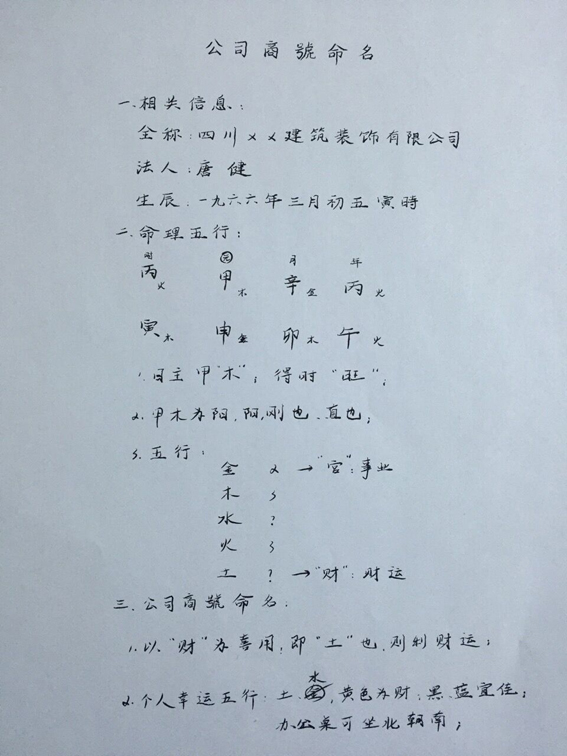 公司商號命名
一.相关信息:
全称:四川××建筑装饰有限公司
法人:唐健
生辰.一九六六年三月初五寅時
二.命理五行:
时 日 月 年
丙火 甲木 辛金 丙火
寅木 申金 卯木 午火
1.日主甲"木";得时"旺";
2.甲木为阳,阳,刚也、直也;
3.五行:
金 2 →"官":事业
木 3
水 ?
火 3
土 ? →"财":财运
三.公司商號命名.
1.以"财"为喜用,即"土"也,则利财运;
水
2.个人幸运五行:土、,黄色为财,黑、蓝宜佳;
办公桌可坐北朝南;